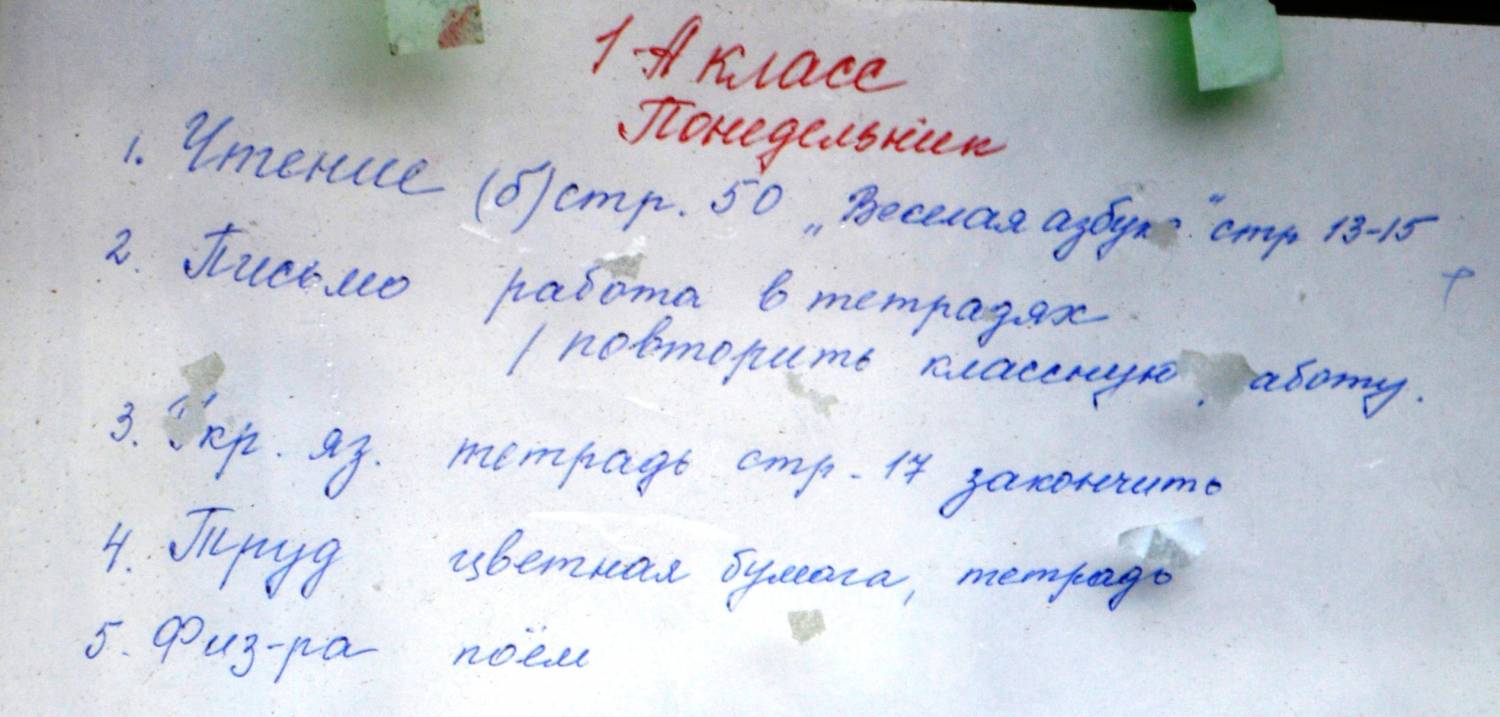 1 А класс
Понедельник
1. Чтение (б) стр. 50 „Веселая азбука" стр 13-15
2. Письмо работа в тетрадях
/ повторить классную работу.
3. Укр. яз. тетрадь стр. 17 закончить
4. Труд цветная бумага, тетрадь
5. Физ-ра поём